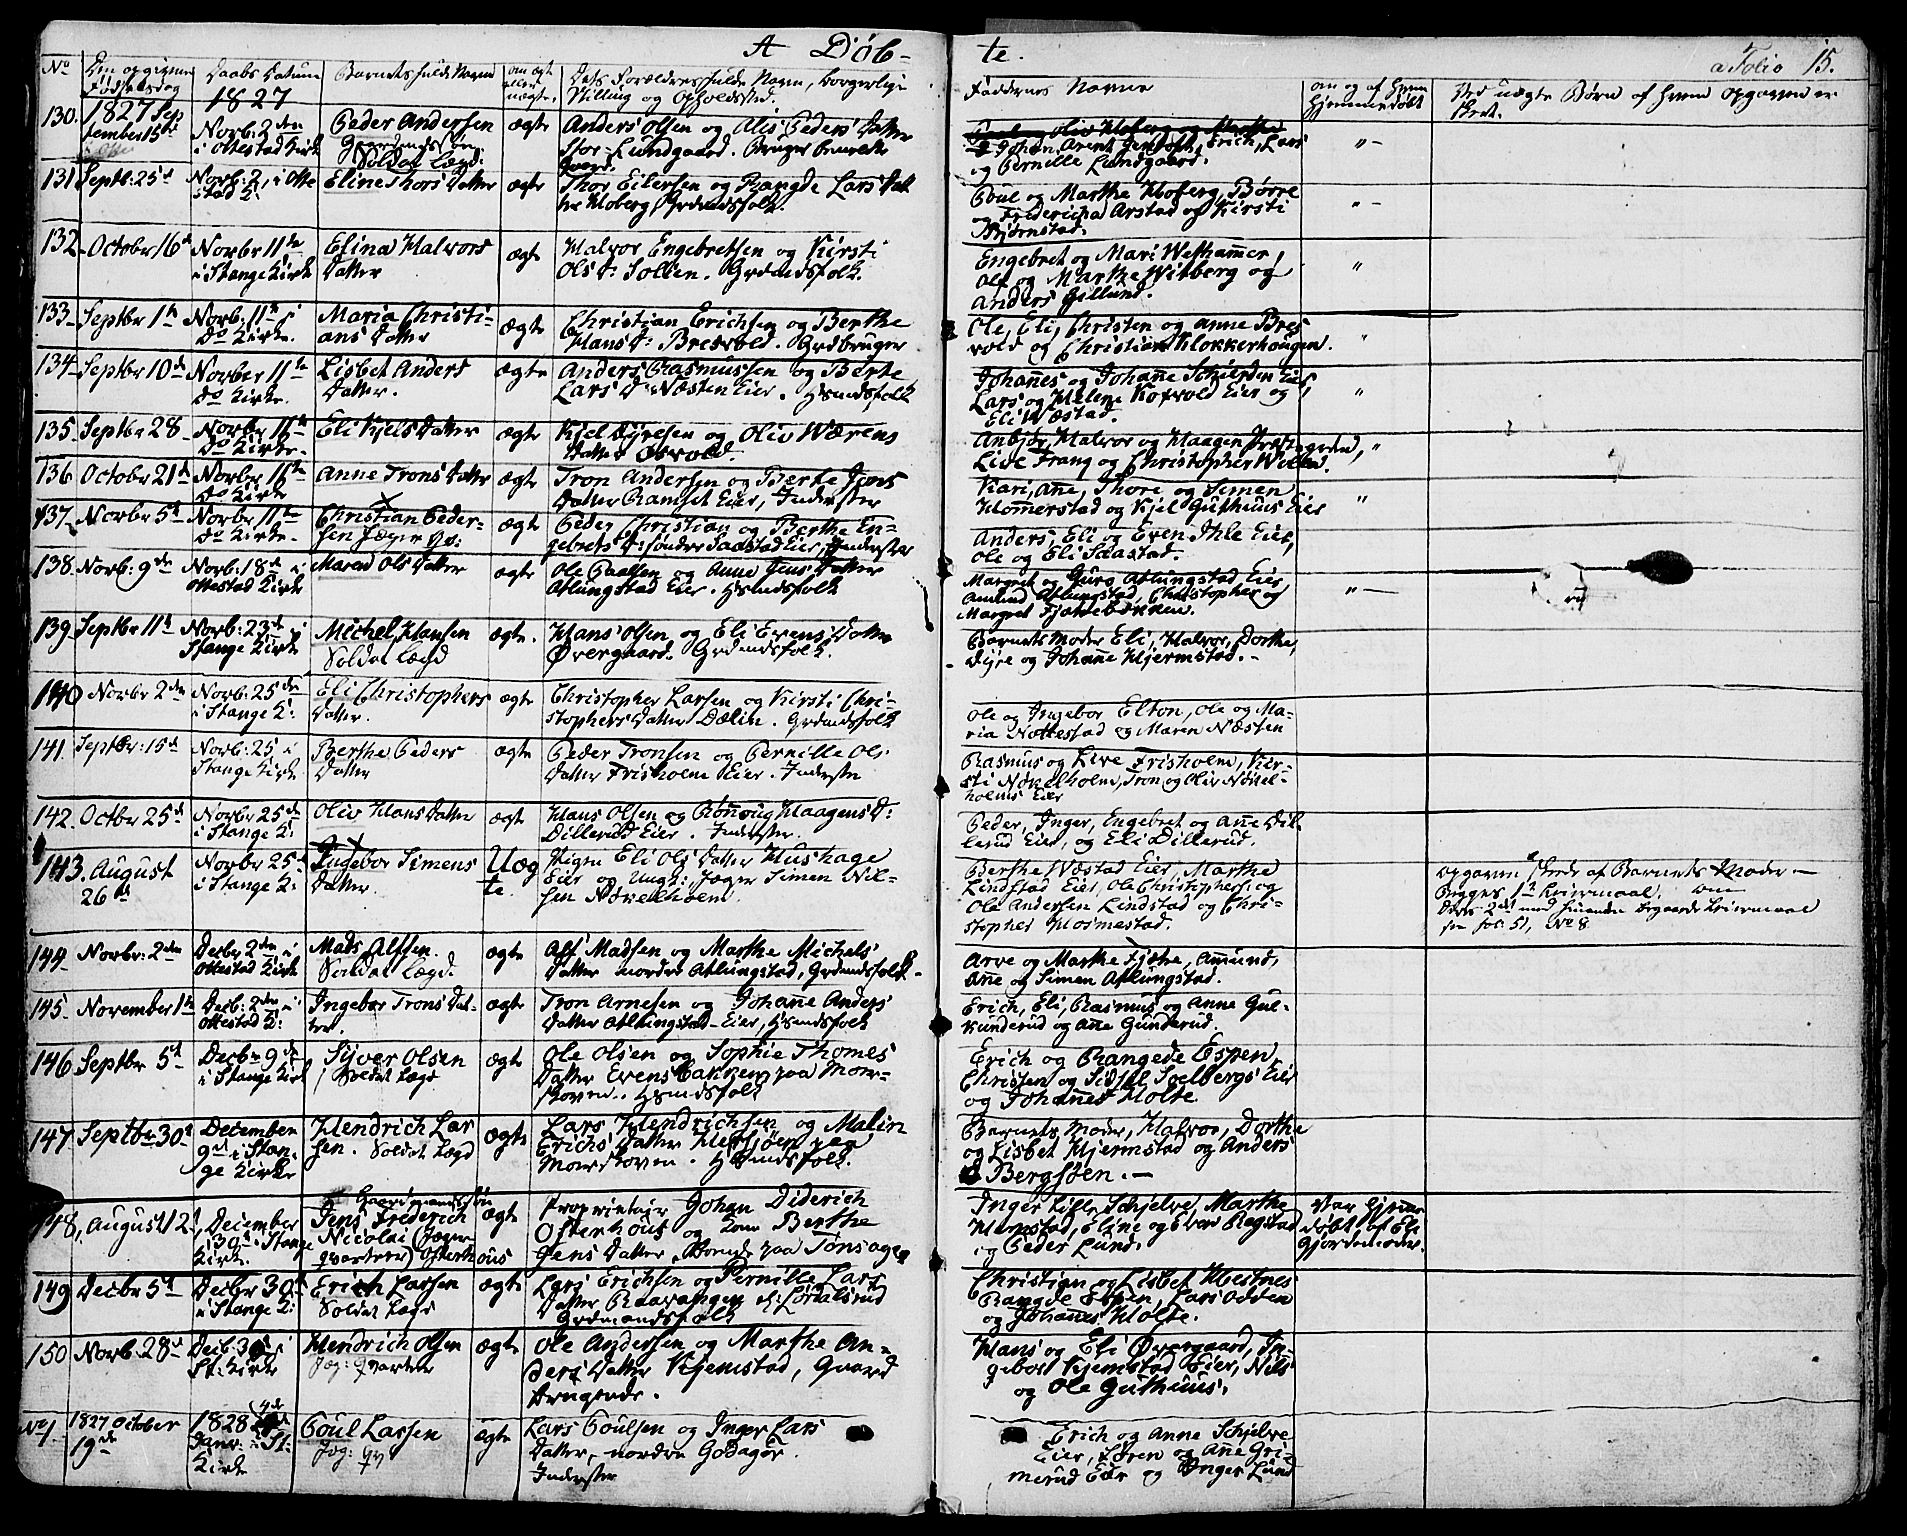 A Døb-
te.
a Folio 15.
No
Den opgivne
Fødselsdag
Daabs Datum
Barnets fulde Navn
om ægt
eller
uægte.
Dets Forældres fulde Navn, borgerlige
Stilling og Opholdsted.
Faddernes Navne
om og af hvem
hjemmedøbt
Ved uægte Børn af hvem opgaven er
skeet.
130.
1827 Sep
tember 15de
1827
Norb: 2den
i Ottestad Kirk
Peder Andersen
Soldat Lægd:
ægte
Anders Olsen og Alis Peders Datter
Stor-Lundgaard. Bruger
Johan, Arent Erich, Lars
og Pernille Lundgaard.
"-
131
Septb: 25d
Norb: 2, i Otte
stad K:
Eline Thors Datter
ægte
Thor Eilersen og Rangde Lars Dat
ter Hoberg, Grdmdsfolk.
Poul og Marthe Hoberg, Børre
og Fredericha Arstad og Kirsti
Bjørnstad.
"-
132
October 16d
Norbr 11te
i Stange Kirk
Elina Halvors
Datter
ægte
Halvor Engebretsen og Kirsti
Ols D: Sollien. Grdmdsfolk.
Engebret og Mari Westhammer,
Ole og Marthe Witberg og
Anders Gillund.
"
133
Septbr 1te
Norb. 11te i
Do Kirke.
Maria Christi-
ans Datter
ægte
Christian Erichsen og Berthe
Hans D: Bresvold. Grdbruger
Ole, Eli, Christen og Anne Bres
vold og Christian Klokkerhaugen.
"
134
Septbr 10de
Norber 11te
Do Kirke.
Lisbet Anders
Datter.
ægte
Anders Rasmussen og Berte
Lars D: Næsten Eier. Hsmdsfolk
Johannes og Johanne Schierden Eier,
Lars og Helene Kofvold Eier og
Eli Wæstad.
"
135
Septbr 28
Norbr 11te
Do Kirke.
Eli Kjels Datter
ægte
Kjel Dyresen og Oliv Wærens
Datter Osvold.
Anbjør, Halvor og Haagen
Live Frang og Christopher Wiken.
"
136
October 21d
Norber 11te
Do Kirke
Anne Trons Datter
ægte
Tron Andersen og Berte Jens
Datter Ramset Eier, Inderster
Kari, Ane, Thore og Simen
Homerstad og Kjel Guthuus Eier
"
137
Norbr 5d
Norbr 11te
Do Kirke.
Christian Peder-
sen Jæger Qv:
ægte
Peder Christian og Berthe En-
gebrets D: søndre Saastad Eier, Inderster
Anders, Eli og Even Ihle Eier,
Ole og Eli Saastad.
138
Norb: 9de
Norb: 18d i
Ottestad Kirk
Maren Ols Datter
ægte
Ole Paalsen og Anne Jens Datter
Atlungstad Eier. Hsmdsfolk
Margret og Guro Atlungstad, Eier,
Amund Atlungstad, Christopher og
Margret Fjætrebækken.
"-
139
Septbr 11te
Norb: 23de i
Stange Kirk
Michel Hansen
Soldat Lægd
ægte.
Hans Olsen og Eli Evens Datter
Øvergaard. Grdmdsfolk.
Barnets Moder Eli, Halvor, Dorthe,
Dyre og Johanne Hjermstad.
140
Norbr 2den
Norb: 25de
i Stange K:
Eli Christophers
Datter.
ægte
Christopher Larsen og Kirsti Chri-
stophers Datter Dælin. Grdmdsfolk
Ole og Ingebor Elton, Ole og Ma-
ria Nøttestad og Maren Næsten
141
Septbr: 15d
Norb: 25 i
Stange Kirk
Berthe Peders
Datter
ægte
Peder Tronsen og Pernille Ols
Datter Frisholm Eier. Inderster
Rasmus og Live Frisholm, Kir-
sti Nøkelholm, Tron og Oliv Nøkel-
holms Eier
142
Octbr 25d
Norbr 25de
i Stange K:
Oliv Hans Datter
ægt
Hans Olsen og Rønnoug Haagens D:
Dillerud Eier. Inderster.
Peder, Inger, Engebret og Ane Dil-
lerud Eier, og Eli Dillerud.
143
August
26de
Norbr 25d
i Stange K:
Ingebor Simens
Datter.
Uæg
te.
Pigen Eli Ols Datter Hushage
Eier og Ungk: Jæger Simen Nil-
sen Nøkelholm.
Berthe Wæstad Eier, Marthe
Lindstad Eier, Ole Christophers: og
Ole Andersen Lindstad og Chri-
stopher Hosmestad.
opgaven skede af Barnets Moder
Begges 1te Leiermaal.
Deres 2det med hinanden begaaede Leiermaal
see fol: 51, No 8.
144
Norbr: 2den
Decbr 2den i
Ottestad Kirk
Mads Alfsen
Soldat Lægd.
ægte
Alf Madsen og Marthe Michels
Datter nordre Atlungstad, Grdmdsfolk.
Arve og Marthe Fjetre, Amund,
Ane og Simen Atlungstad.
145
November 1te
Decb: 2den i
Ottestad K:
Ingebor Trons Dat-
ter.
ægte
Tron Arnesen og Johanne Anders
Datter Atlungstad-Eier, Hsmdsfolk
Erich, Eli, Rasmus og Anne Gul-
kunderud og Ane Gunderud.
146
Septbr 5d
Decbr 9de
i Stange Kirk
Syver Olsen
Soldat Lægd
ægte
Ole Olsen og Sophie Thomes
Datter Evensbakken paa Mor-
skoven. Hsmdsfolk
Erich og Rangde Espen,
Christen og Sidsel Soelbergs Eier
og Johannes Holte
147
Septbr 30d
December
9de i Stan-
ge Kirke
Hendrich Lar
sen. Soldat Lægd
ægte
Lars Hendrichsen og Malin
Erichs Datter Hersjøen paa
Morskoven. Hsmdsfolk.
Barnets Moder, Halvor, Dorthe
og Lisbet Hjermstad og Anders
Bergsøen.
148
August 12
December
30d i Stange
Kirke.
Gaardmandssøn
Jens Frederich
Nicolai (Jæger
qvarteer) Osterhous
ægte
Proprietair Johan Diderich
Osterhous og Kone Berthe
Jens Datter, boende paa Tønsager
Inger Lille Schjelve, Marthe
Hemstad, Eline og Even Rogstad
og Peder Lund.
Var hjemme
døbt af Eli
Gjordemoder.
149
Decbr 5d
Decbr 30d
i Stange K:
Erich Larsen
Soldat Lægd
ægte
Lars Erichsen og Pernille Lars
Datter, Raavangen
Grdmandsfolk
Christian og Lisbet Hestnes
Rangde Espen, Lars Odden
og Johannes Holte.
150
Norb: 28d
Decb: 30d i
St. Kirke
Hendrich Olsen
Jæg: Qvarteer
ægte
Ole Andersen og Marthe An-
ders Datter Kjemstad, Gaard
brugende.
Hans og Eli Øvergaard, In-
gebor Kjemstad Eier, Nils
og Ole Guthuus.
No 1.
1827 October
19de
1828
Janr: i St:
Kirke
Poul Larsen
Jæg: Qv
ægte
Lars Poulsen og Inger Lars
Datter, nordre Godager.
Inderster
Erich og Anne Schjelve
Eier, Søren og Ane Gri-
merud Eier og Inger Lund